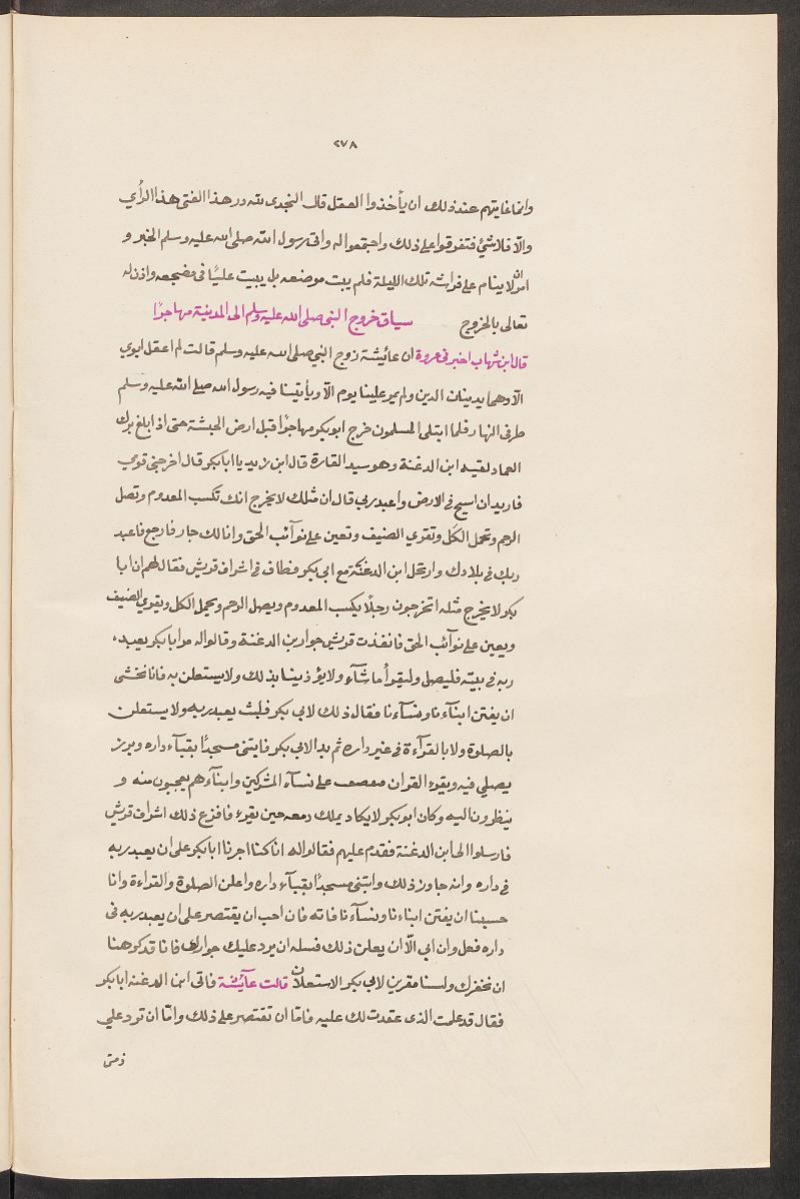 ٢٧٨
وانما غايتهم عند ذلك ان يأخذوا العقل قال النجدى لله در هذا الفتى هذا الرأي
والّا فلا شئ فتفرقوا على ذلك واجتمعوا له واتى رسول الله صلى الله عليه وسلم الخبر و
امر ان لا ينام على فراشه تلك الليلة فلم يبت موضعه بل يبيت عليًا فى مضجعه واذن له
تعالى بالخروج سياق خروج النبي صلى الله عليه وسلم الى المدينة مهاجرًا
قال ابن شهاب اخبرنى عروة ان عائيشة زوج النبي صلى الله عليه وسلم قالت لم اعقل ابوي
الّا وهما يدينان الدين ولم يمر علينا يوم الّا ويأتينا فيه رسول الله صلى الله عليه وسلم
طرفى النهار فلما ابتلى المسلمون خرج ابوبكر مهاجرًا قبل ارض الحبشة حتى اذا بلغ برك
العماد لقيه ابن الدغنة وهو سيد القارة قال اين تريد يا ابابكر قال اخرجنى قومي
فاريد ان اسيح فى الارض واعبد ربي قال ان مثلك لا يخرج انك تكسب المعدوم وتصل
الرحم وتحمل الكلّ وتقري الضيف وتعين على نوآئب الحق وانا لك جار فارجع فاعبد
ربك فى بلادك وارتحل ابن الدغنة مع ابى بكر فطاف فى اشراف قريش فقال لهم ان ابا
بكر لا يخرج مثله اتخرجون رجلًا يكسب المعدوم ويصل الرحم ويحمل الكل ويقري الضيف
ويعين على نوآئب الحق فانفذت قريش جوار بن الدغنة وقالوا له مر ابا بكر يعبد
ربه فى بيته فليصلى وليقرأ ما شآء ولا يؤذينا بذلك ولا يستعلن به فانا نخشى
ان يفتن ابنآءنا ونسآءنا فقال ذلك لابى بكر فلبث يعبد ربه ولا يستعلن
بالصلوة ولا بالقرآءة فى غير داره ثم بدا لابي بكر فابتنى مسجدًا بقبآء داره وبرز
يصلي فيه ويقرء القران فيصف على نسآء المشركين وابنآءهم يعجبون منه و
ينظرون اليه وكان ابوبكر لا يكاد يملك دمعه حين يقرء فافزع ذلك اشراف قريش
فارسلوا الى ابن الدغنة فقدم عليهم فقالوا له انا كنا اجرنا ابابكر على ان يعبد ربه
فى داره وانه جاوز ذلك وابتنى مسجدًا بقبآء داره واعلن الصلوة والقراءة وانا
حسبنا ان يفتن ابناءنا ونسآءنا فاته فان احب ان يقتصر على ان يعبد ربه فى
داره فعل وان ابى الّا ان يعلن ذلك فسله ان يرد عليك جوارك فانا قد كرهنا
ان نخفرك ولسنا مقرين لابي بكر الاستعلان قالت عآئشة فاتى ابن الدغنه ابابكر
فقال قد علمت الذى عقدت لك عليه فامّا ان تقتصر على ذلك وامّا ان ترد علي
ذمتى